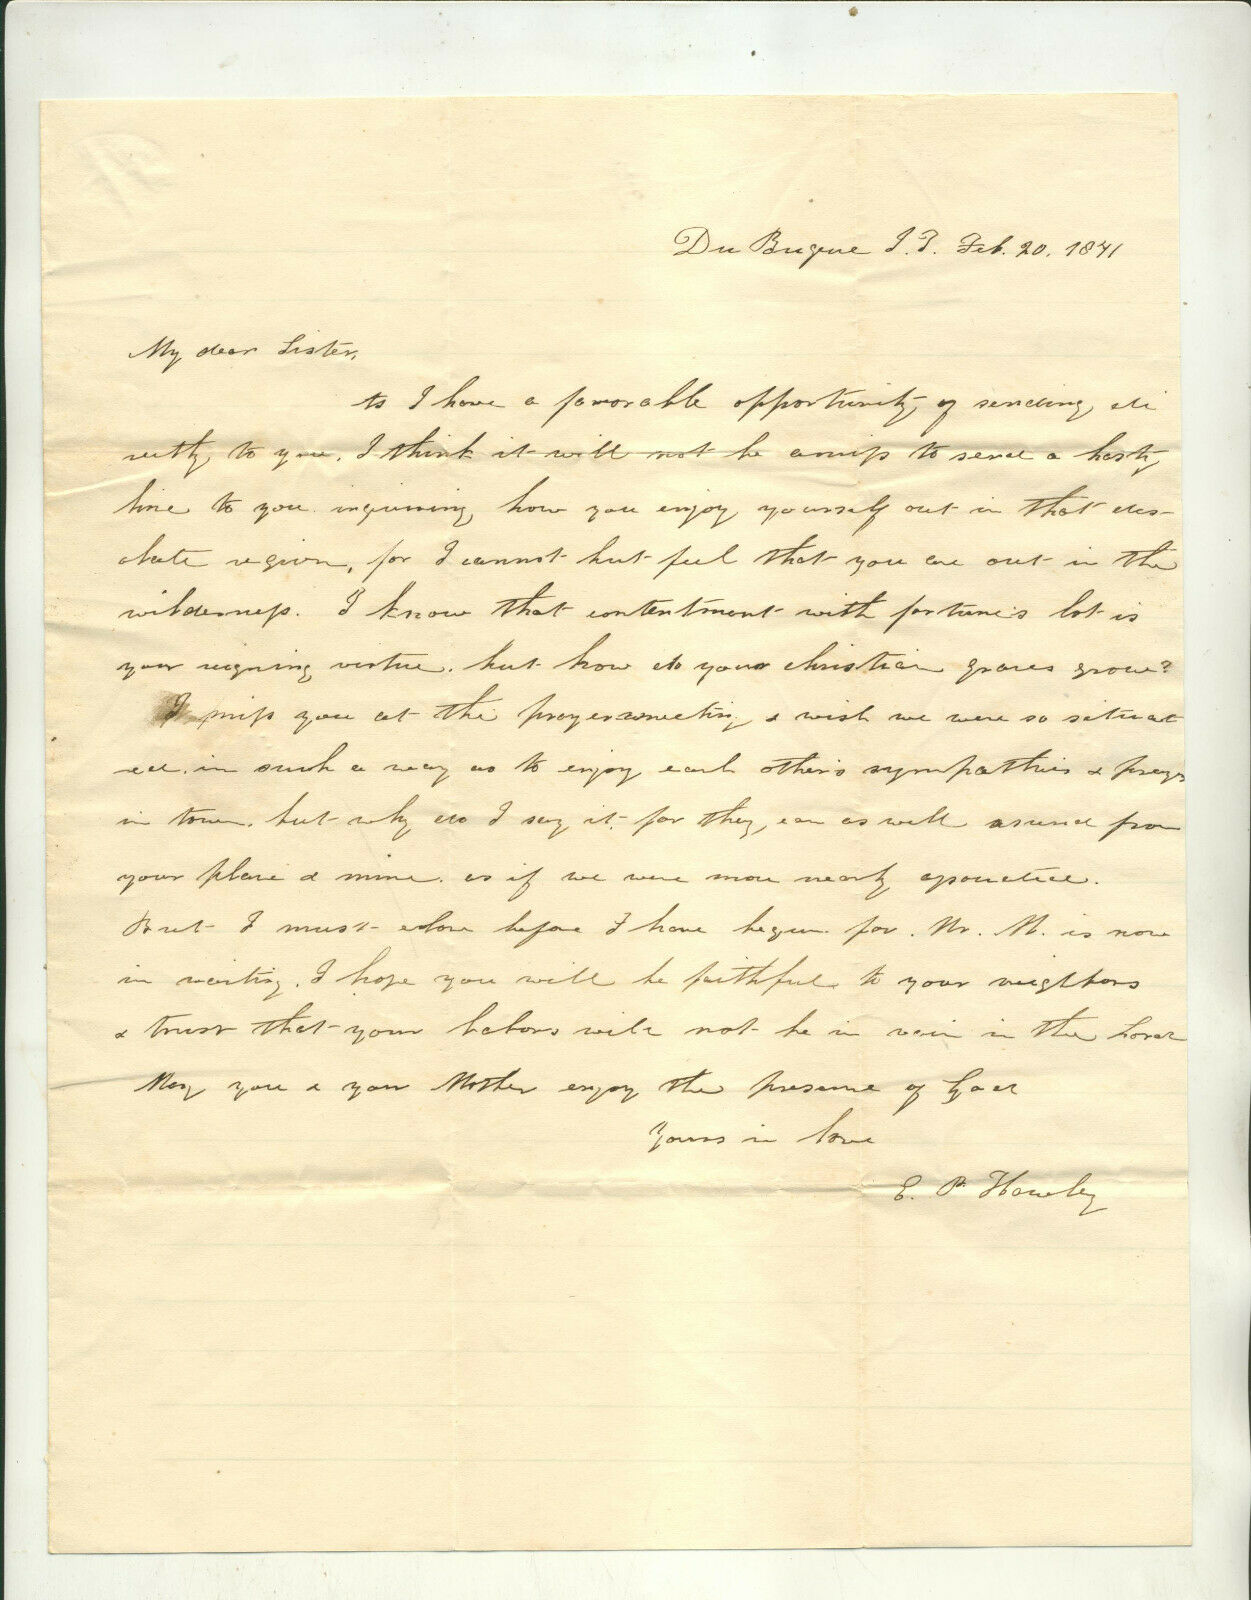 Du Buque I. T. Feb. 20. 1841
My dear Sister,
As I have a favorable opportunity of sending di
rectly to you, I think it will not be amiss to send a hasty
line to you inquiring how you enjoy yourself out in that des-
olate region, for I cannot but feel that you are out in the
wilderness. I know that contentment with fortune's lot is
your reigning virtue. but how do your christian graces grow?
I miss you at the prayermeeting & wish we were so situat
ed. in such a way as to enjoy each other's sympathies & prayers
in town. but why do I say it, for they can as well ascend from
your place & mine. as if we were more nearly
But I must close before I have begun for. Mr. M. is now
in waiting. I hope you will be faithful to your neighbors
& trust that your labors will not be in vain in the Lord
May you & your Mother enjoy the presence of God
Yours in love
E. P. Hawley